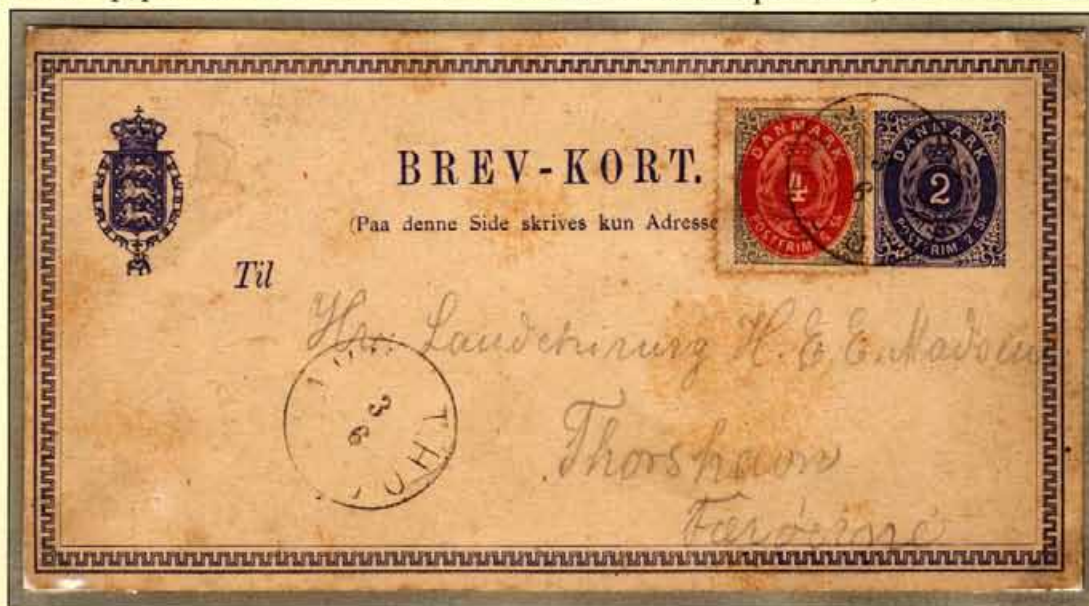 BREV-KORT.
(Paa denne Side skrives kun Adresse
DANMARK
4
POSTFRIM. 4 SK.
DANMARK
2
POSTFRIM. 2 SK.
Til
Hr. Landchirurg H. E. E. Madsen
Thorshavn
Færøerne
3
6
THO